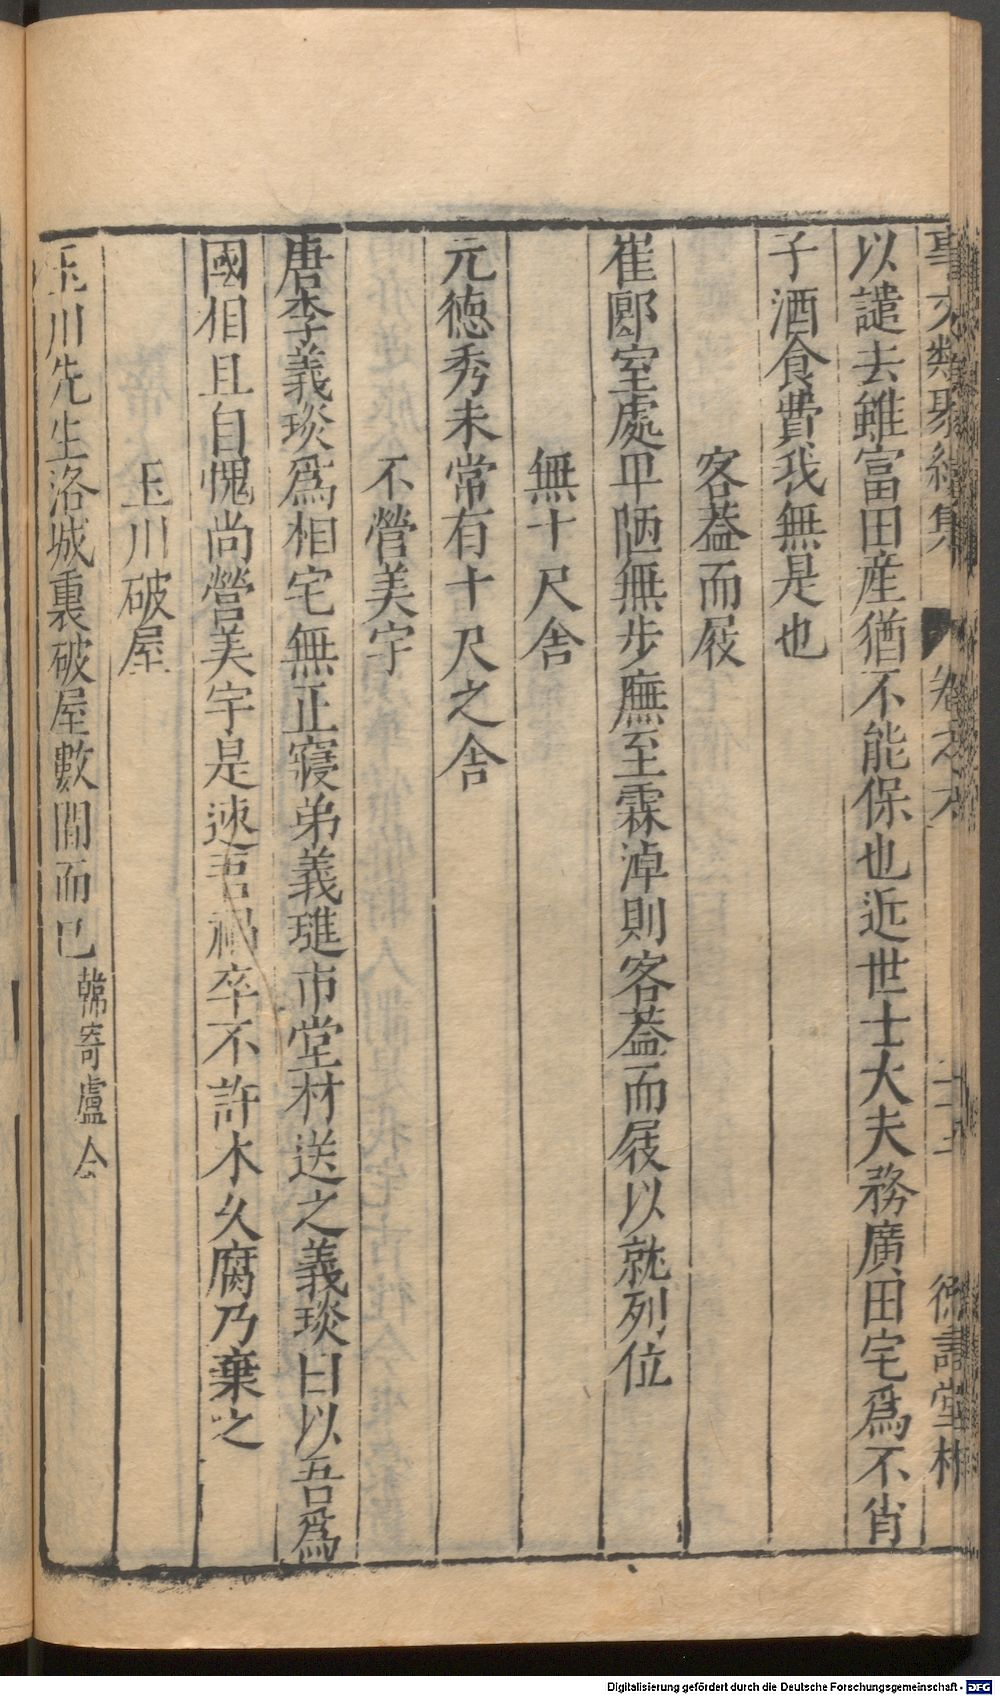 事文類聚續集 卷之六
以譴去雖富田産猶不能保也近世士大夫務廣田宅爲不肖
子酒食費我無是也
客葢而屐
崔郾室處卑陋無步廡至霖淖則客葢而屐以就列位
無十尺舍
元德秀未常有十尺之舍
不營美宇
唐李義琰爲相宅無正寢弟義璡市堂材送之義琰曰以吾爲
國相且自愧尚營美宇是速吾禍卒不許木久腐乃棄之
玉川破屋
玉川先生洛城裏破屋數間而已韓寄盧仝
Digitalisierung gefördert durch die Deutsche Forschungsgemeinschaft - DFG